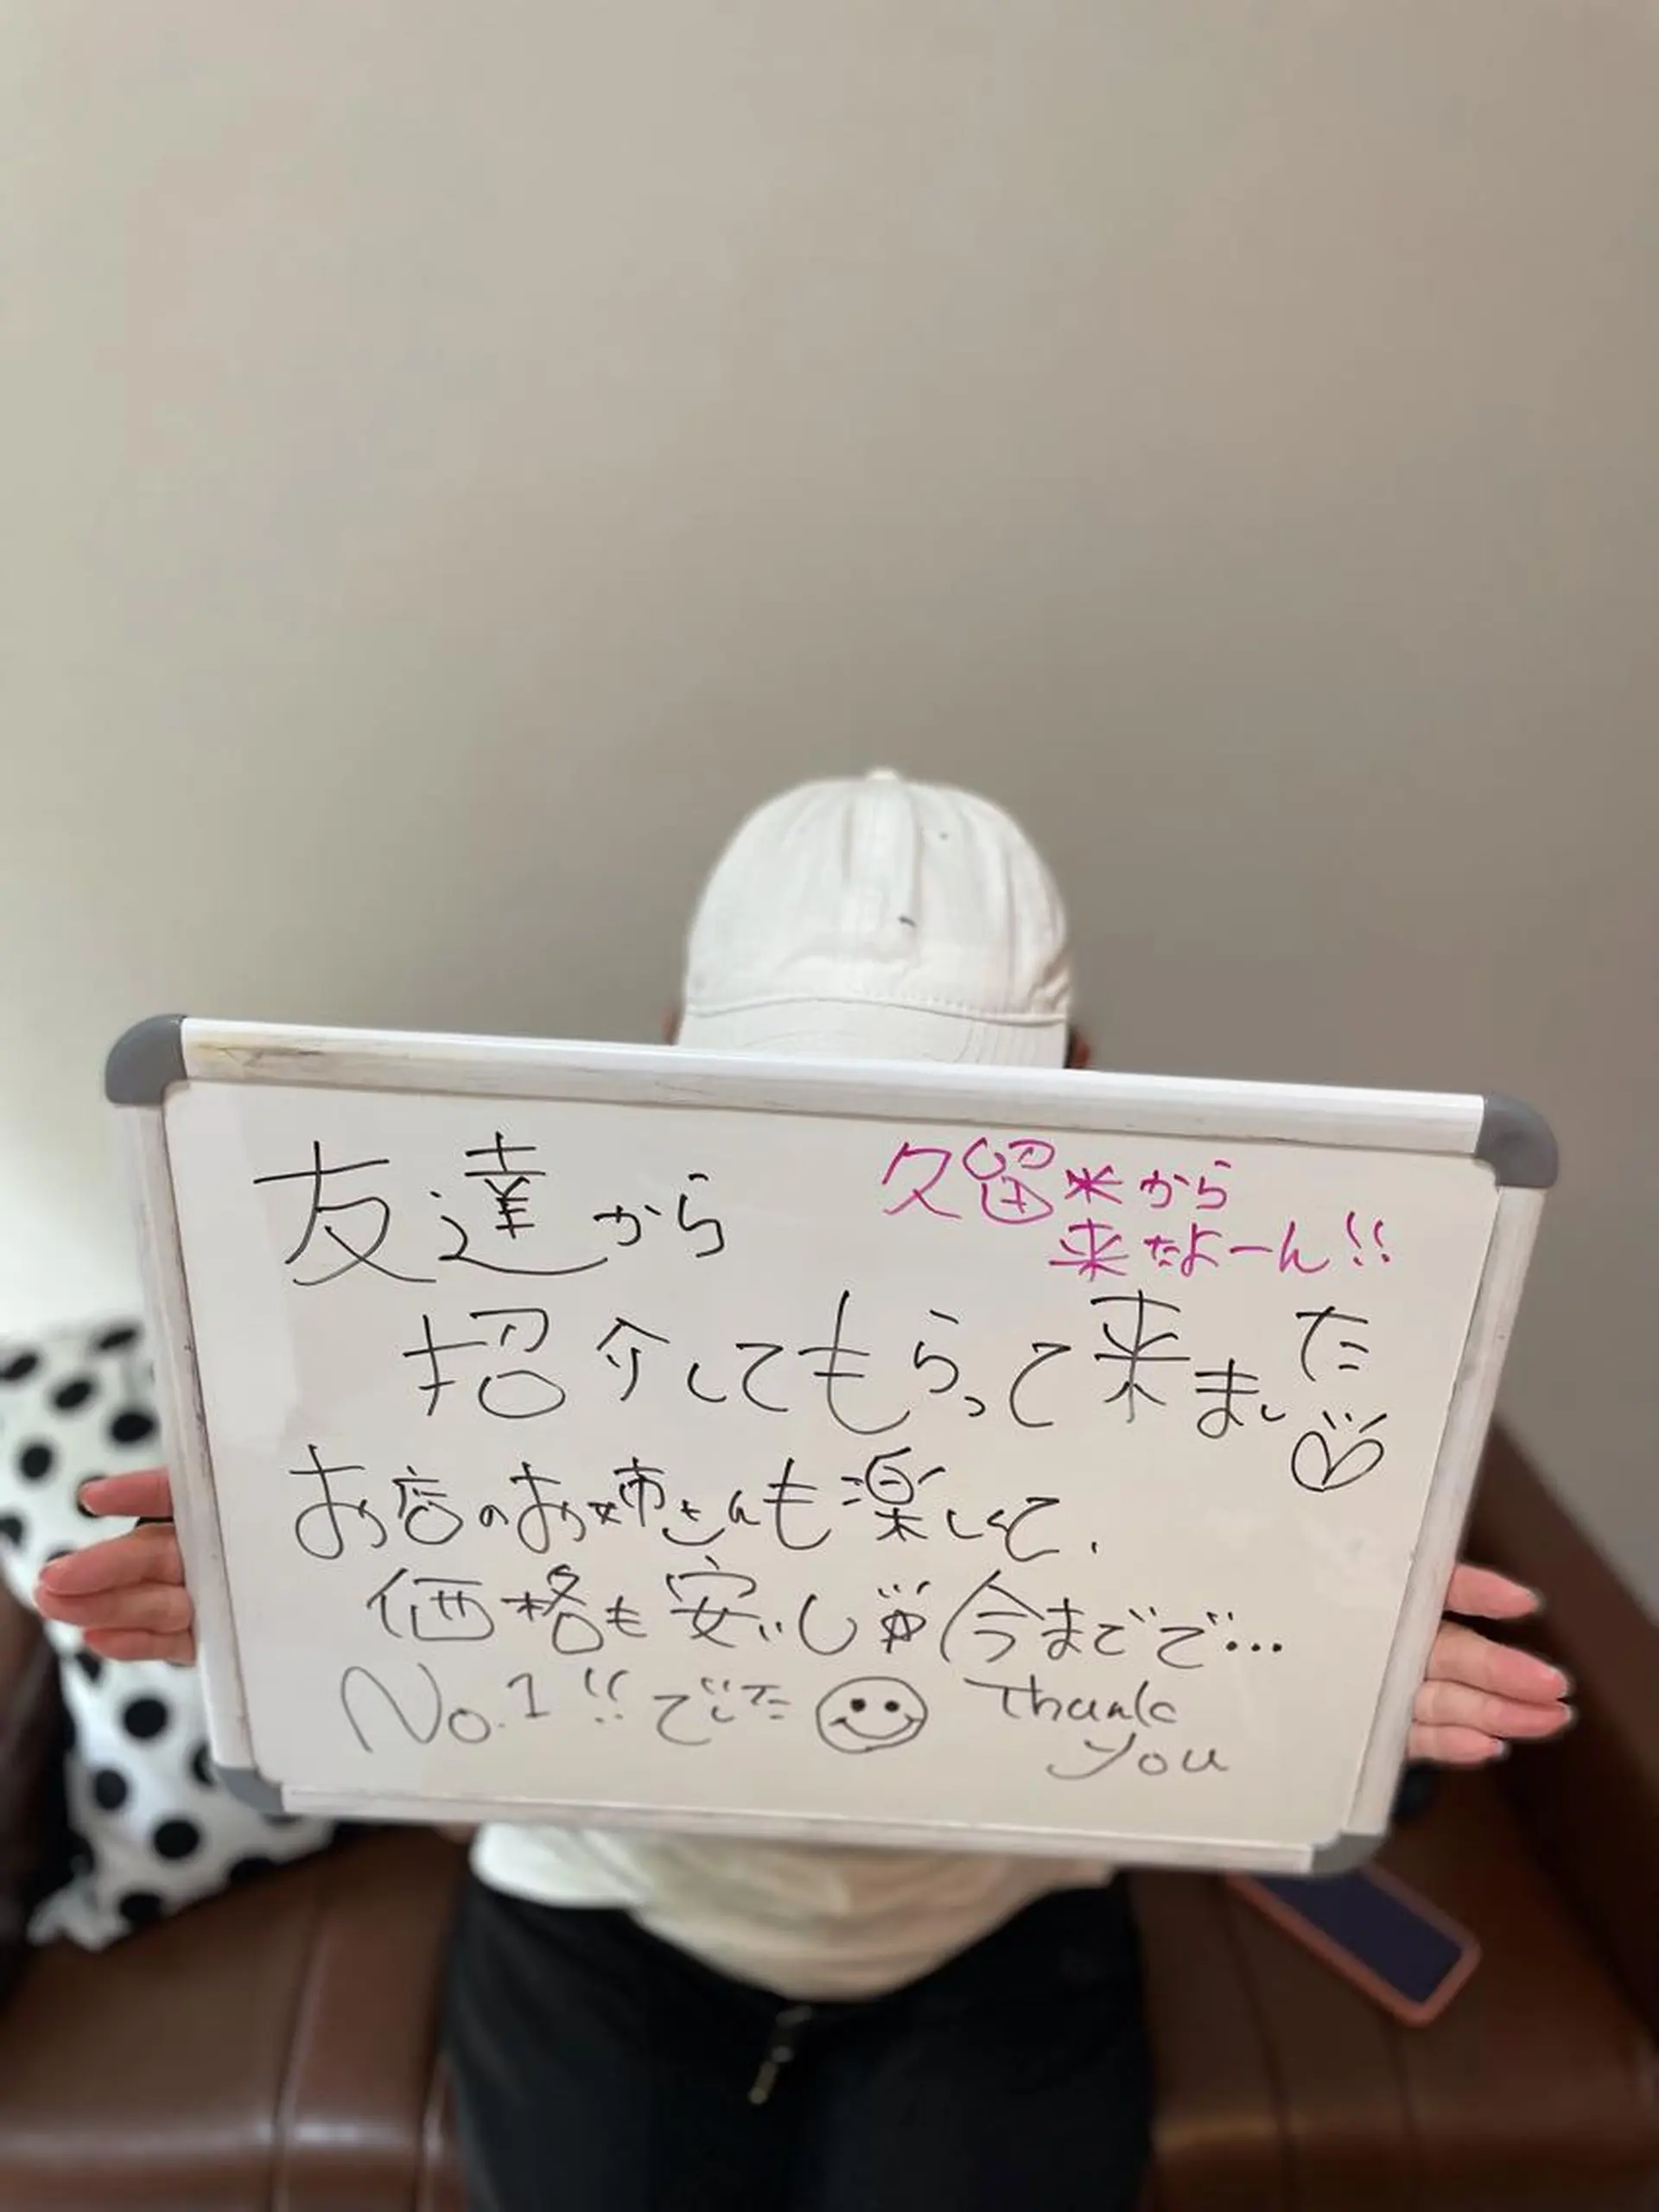 友達から
久留米から
来たよーん!!
紹介してもらって来ました♡
お店のお姉さんも楽しくて、
価格も安いし 今までで…
No.1!!でした Thank
you